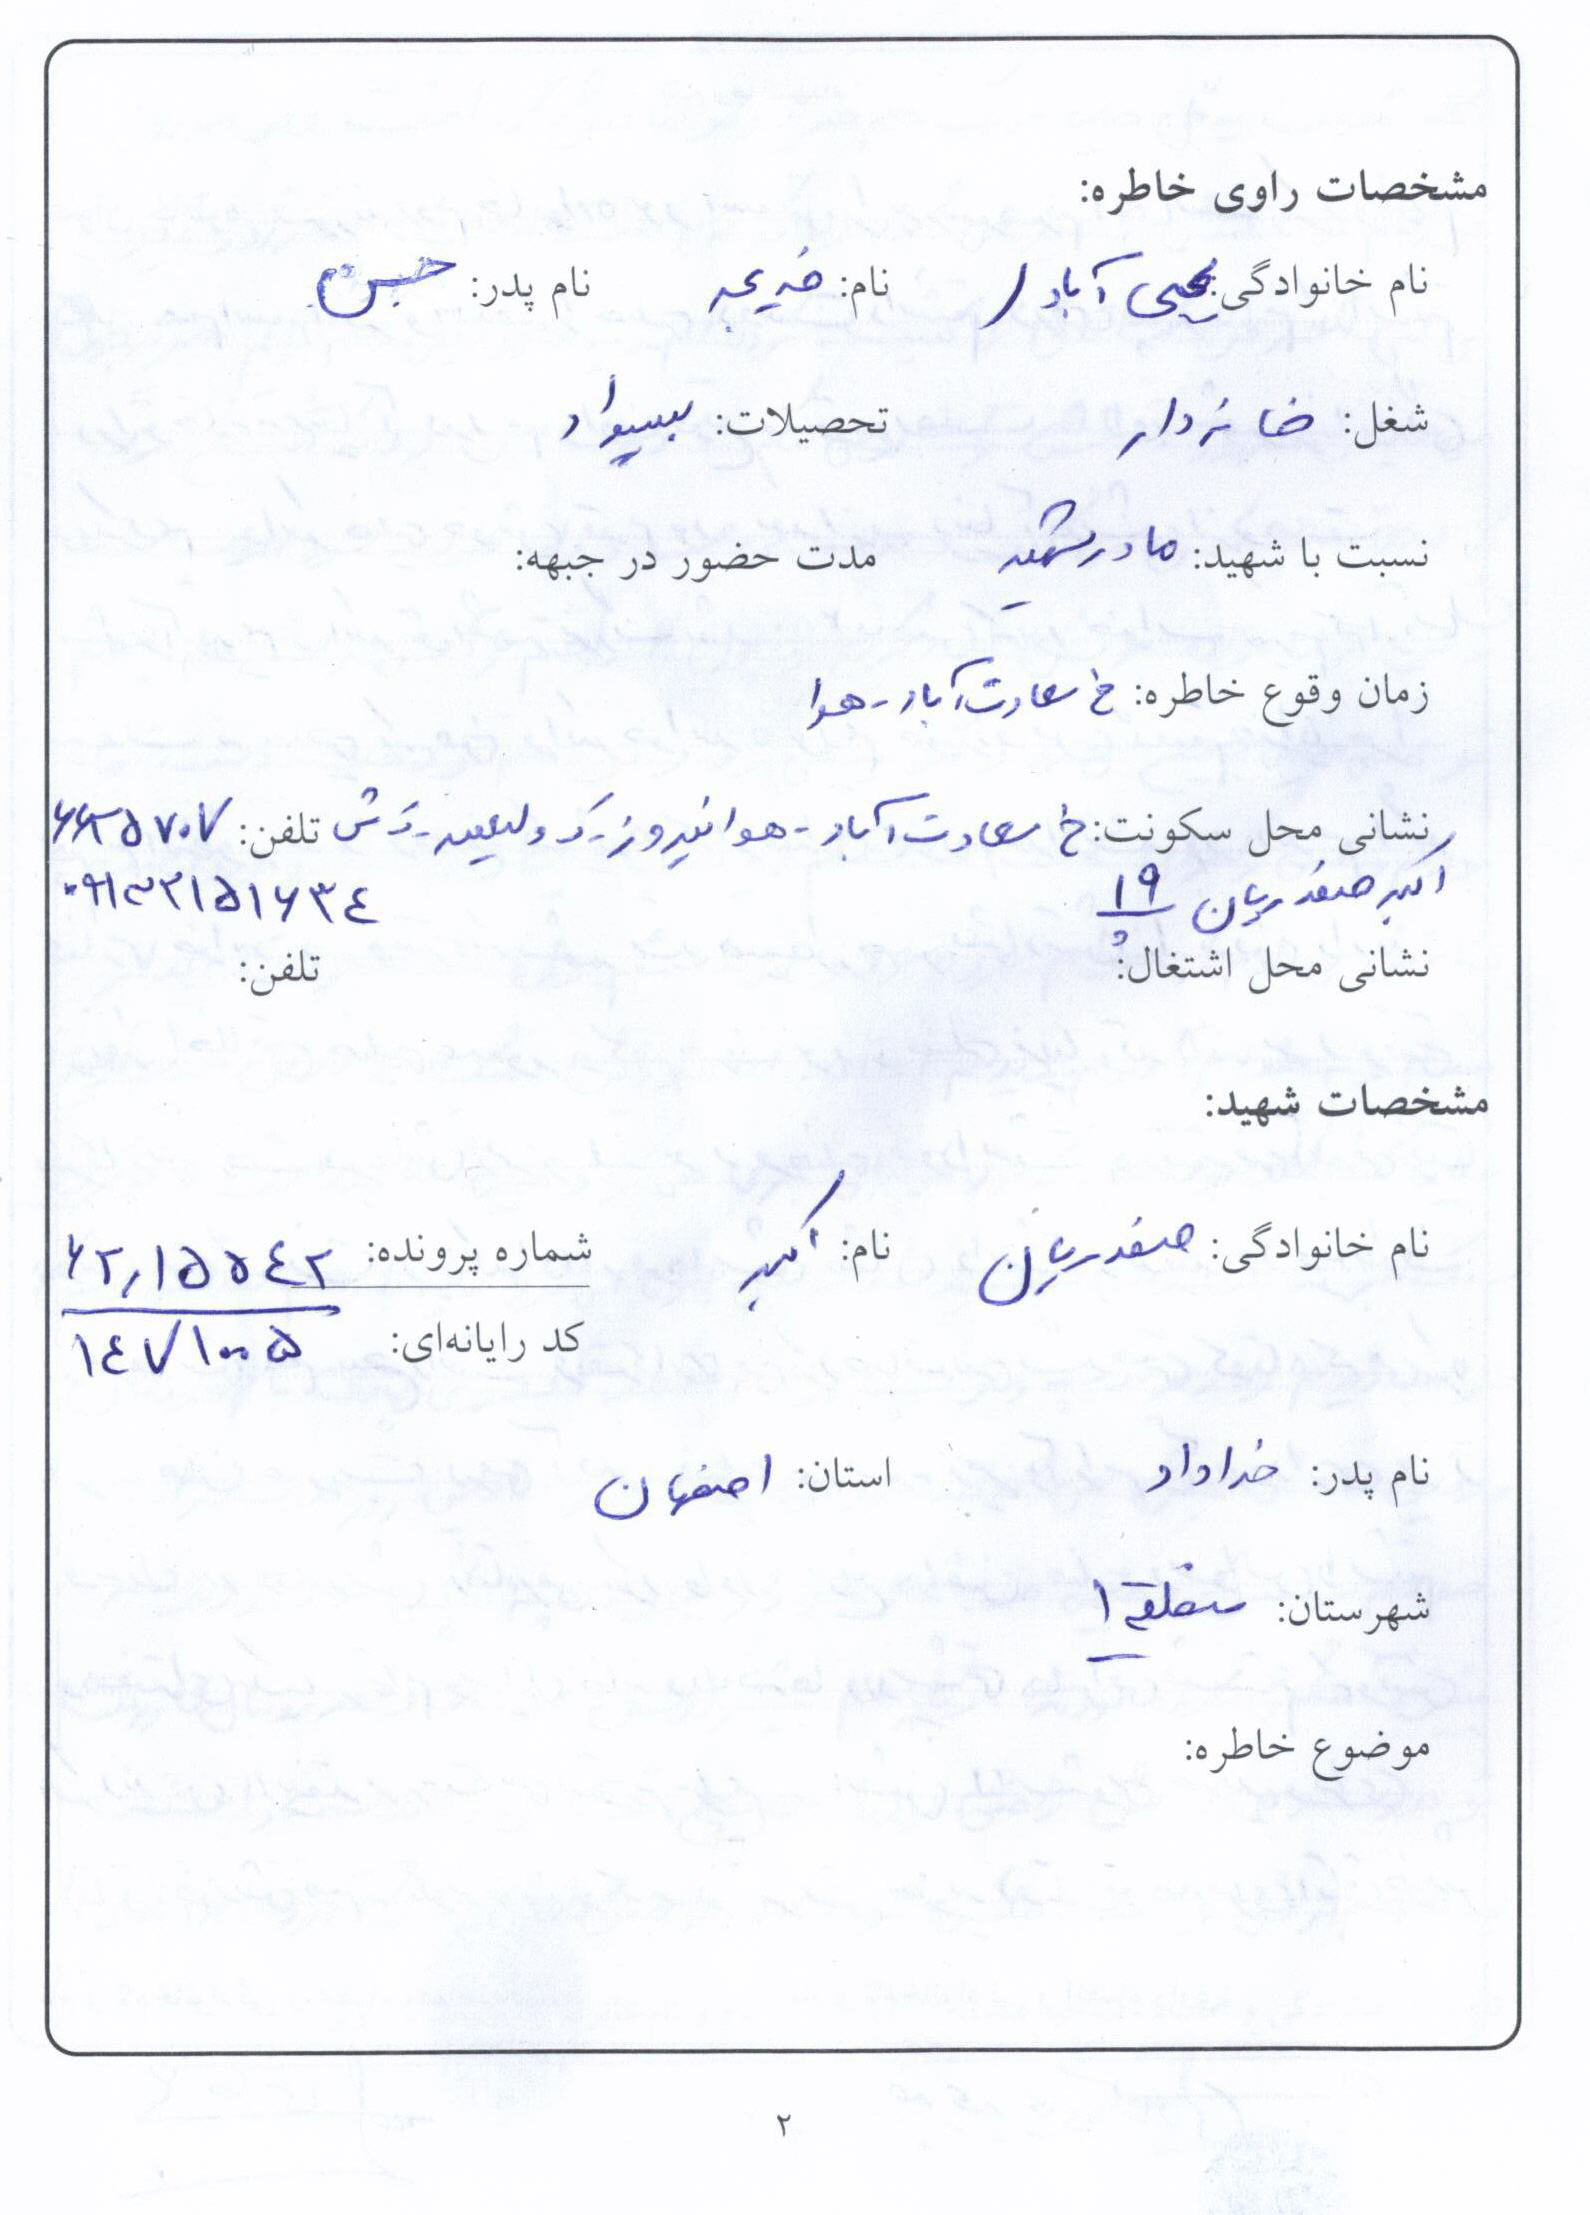 مشخصات راوی خاطره:
نام خانوادگی: یحیی آبادی نام: خدیجه نام پدر: حسن
شغل: خانه دار تحصیلات: بیسواد
نسبت با شهید: مادر شهید مدت حضور در جبهه:
زمان وقوع خاطره: خ سعادت آباد - هوا
نشانی محل سکونت: خ سعادت آباد - هوانیروز - ک ولیعصر - ک ش تلفن: ۶۶۳۵۷۰۷
اکبر صفدریان ۱۹ ۰۹۱۳۲۱۵۱۶۳۴
نشانی محل اشتغال: تلفن:
مشخصات شهید:
نام خانوادگی: صفدریان نام: اکبر شماره پرونده: ۶۲,۱۵۵۴۲
کد رایانه‌ای: ۱۴۷۱۰۰۵
نام پدر: خداداد استان: اصفهان
شهرستان: منطقه ۱
موضوع خاطره:
۲